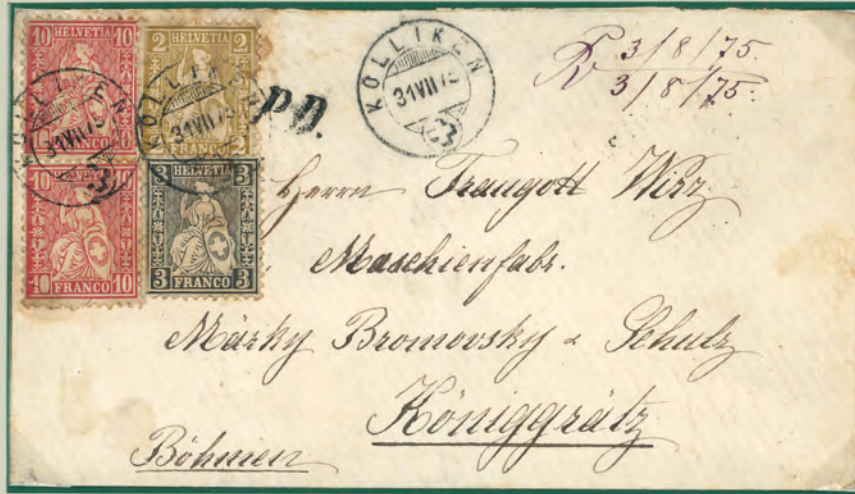 10 HELVETIA 10
FRANCO
2 HELVETIA 2
2 FRANCO 2
10 10
10 FRANCO 10
3 HELVETIA 3
3 FRANCO 3
KÖLLIKEN
31 VII 75
KÖLLIKEN
31 VII 75
P.D.
KÖLLIKEN
31 VII 75
3/8/75.
3/8/75.
Herrn Traugott Wirz
Maschienfabr.
Märky Bromovsky & Schulz
Königgrätz
Böhmen